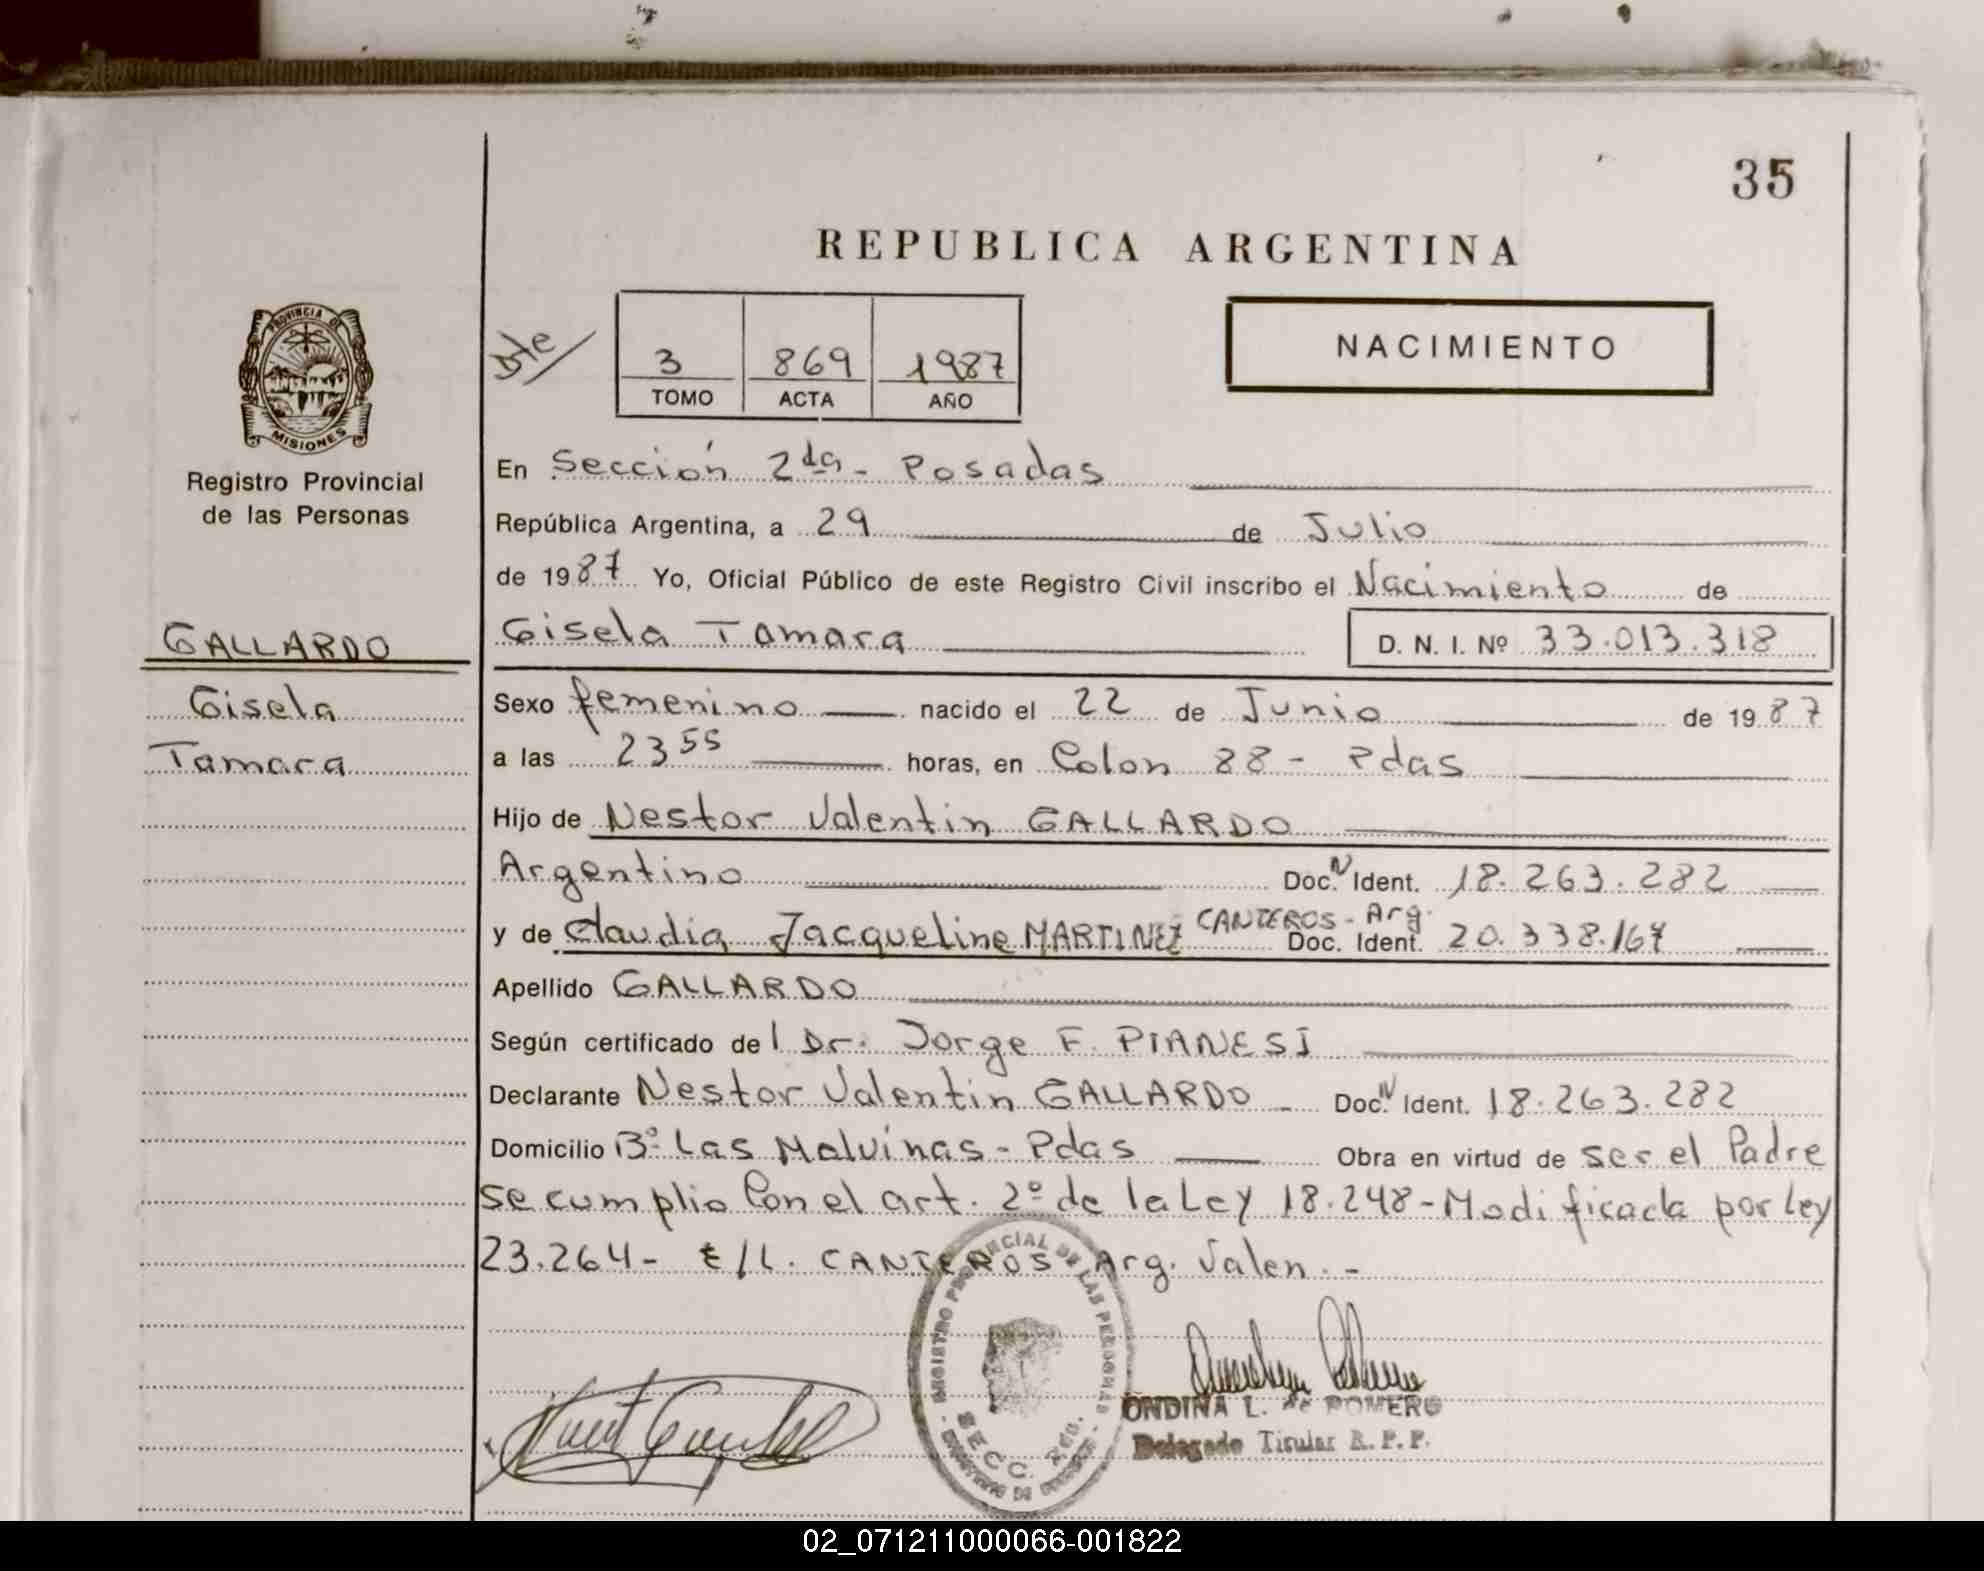 35
REPUBLICA ARGENTINA
PROVINCIA DE
MISIONES
Registro Provincial
de las Personas
Dte/
3 869 1987
TOMO ACTA AÑO
NACIMIENTO
En Sección 2da - Posadas
República Argentina, a 29 de Julio
de 1987 Yo, Oficial Público de este Registro Civil inscribo el Nacimiento de
GALLARDO
Gisela Tamara D. N. I. Nº 33.013.318
Gisela
Sexo femenino nacido el 22 de Junio de 1987
Tamara
a las 23 55 horas, en Colon 88 - Pdas
Hijo de Nestor Valentin GALLARDO
Argentino Doc. N Ident. 18.263.282
y de Claudia Jacqueline MARTINEZ CANTEROS - Arg. Doc. Ident. 20.338.167
Apellido GALLARDO
Según certificado de l Dr. Jorge F. PIANESI
Declarante Nestor Valentin GALLARDO - Doc. N Ident. 18.263.282
Domicilio Bº Las Malvinas - Pdas Obra en virtud de ser el Padre
se cumplio Con el art. 2º de la Ley 18.248 - Modificada por Ley
23.264 - E/L. CANTEROS Arg. Valen. -
REGISTRO PROVINCIAL DE LAS PERSONAS
SECC. 2da.
ONDINA L. de ROMERO
Delegado Titular R. P. P.
02_071211000066-001822